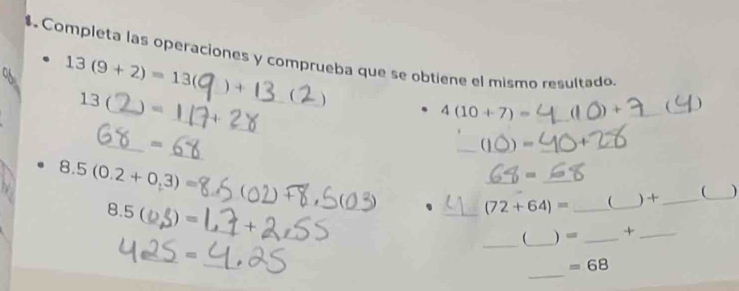 1. Completa las operaciones y comprueba que se obtiene el mismo resultado.
• 13 (9 + 2) = 13(9) + 13 (2)
13 (2) = 117 + 28
68 = 68
• 8.5 (0.2 + 0.3) = 8.5 (02) + 8.5(03)
8.5 (0.5) = 1.7 + 2.55
425 = 4.25
• 4 (10 + 7) = 4 (10) + 7 (4)
_ (10) = 40 + 28
68 = 68
• 4 (72 + 64) = __ (__) + __ (__)
__ (__) = __ + __
__ = 68